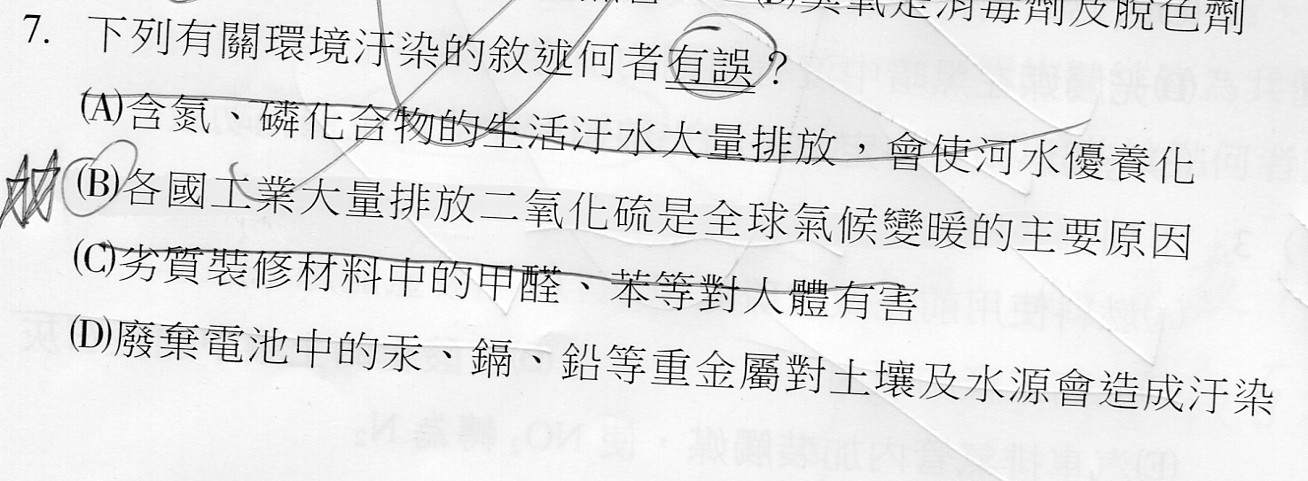 (D)臭氧是消毒劑及脫色劑
7. 下列有關環境汙染的敘述何者有誤?
(A)含氮、磷化合物的生活汙水大量排放,會使河水優養化
(B)各國工業大量排放二氧化硫是全球氣候變暖的主要原因
(C)劣質裝修材料中的甲醛、苯等對人體有害
(D)廢棄電池中的汞、鎘、鉛等重金屬對土壤及水源會造成汙染